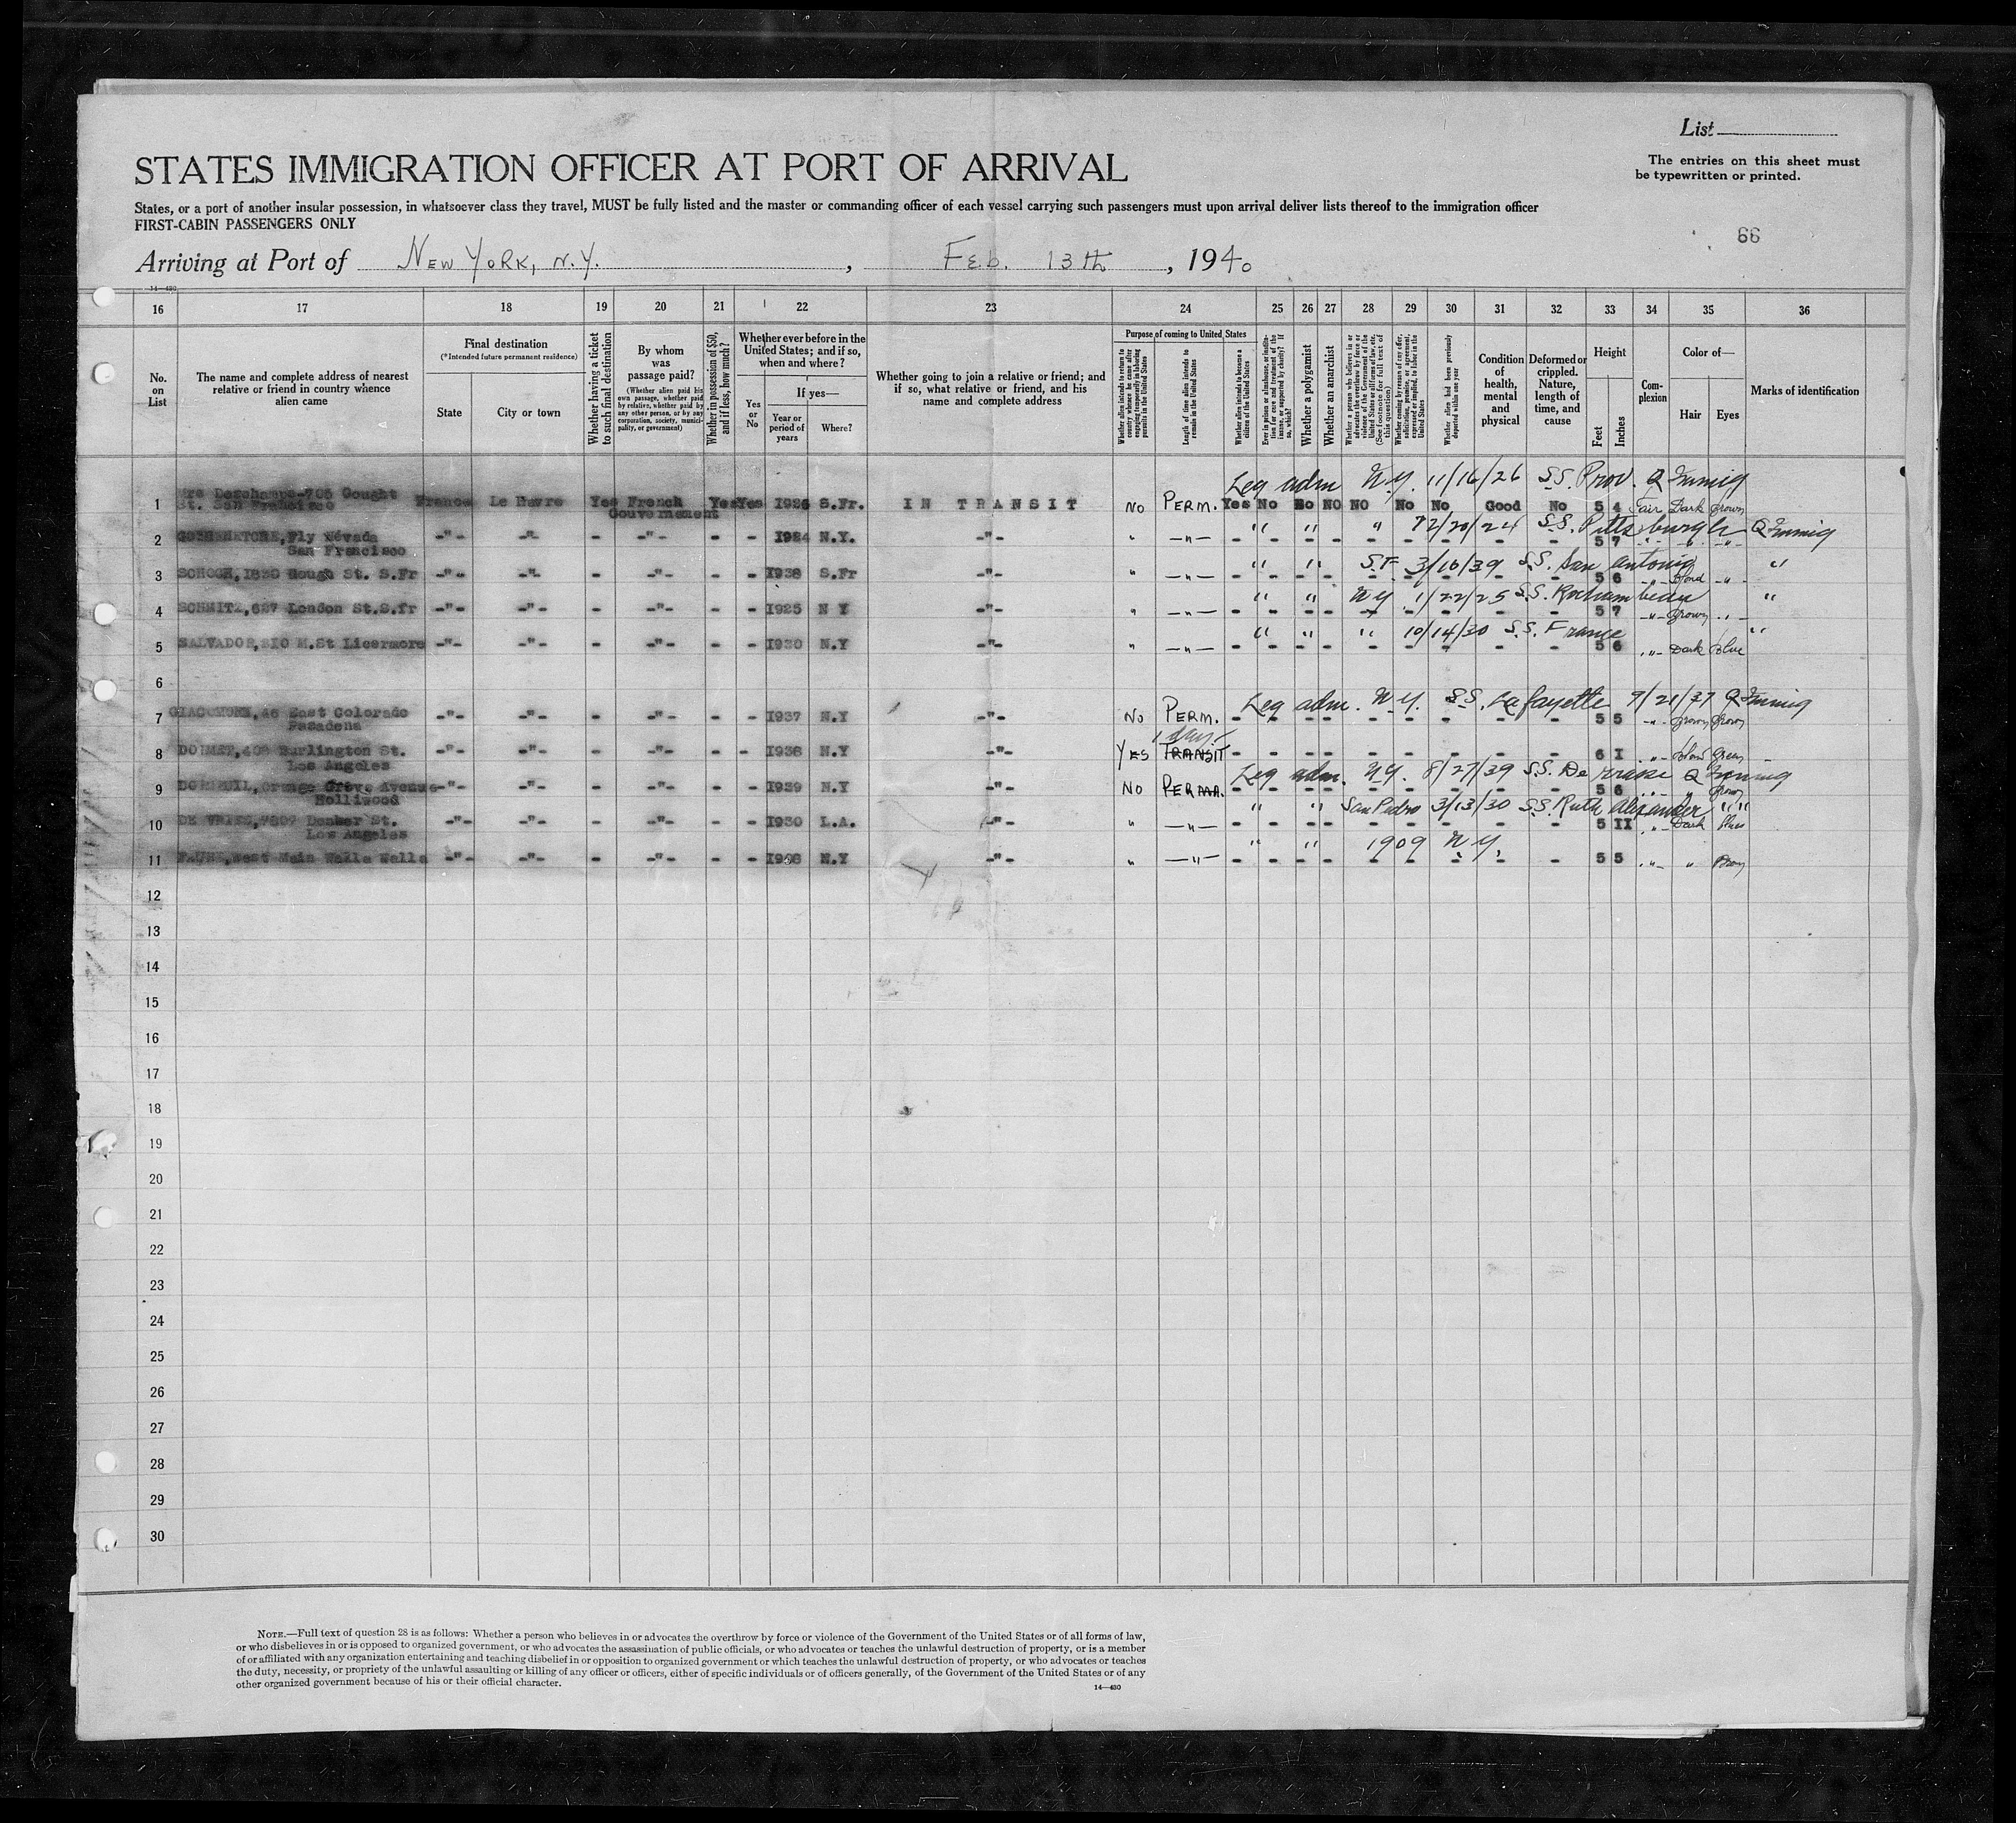 List
STATES IMMIGRATION OFFICER AT PORT OF ARRIVAL
The entries on this sheet must
be typewritten or printed.
States, or a port of another insular possession, in whatsoever class they travel, MUST be fully listed and the master or commanding officer of each vessel carrying such passengers must upon arrival deliver lists thereof to the immigration officer
FIRST-CABIN PASSENGERS ONLY
66
Arriving at Port of NEW YORK, N.Y. , FEB. 13th , 1940
14-430
16 17 18 19 20 21 22 23 24 25 26 27 28 29 30 31 32 33 34 35 36
No. on List
The name and complete address of nearest
relative or friend in country whence
alien came
Final destination
(*Intended future permanent residence)
State
City or town
Whether having a ticket to such final destination
By whom
was
passage paid?
(Whether alien paid his
own passage, whether paid
by relative, whether paid by
any other person, or by any
corporation, society, munici-
pality, or government)
Whether in possession of $50, and if less, how much?
Whether ever before in the
United States; and if so,
when and where?
Yes or No
If yes—
Year or period of years
Where?
Whether going to join a relative or friend; and
if so, what relative or friend, and his
name and complete address
Purpose of coming to United States
Whether alien intends to return to country whence he came after engaging temporarily in laboring pursuits in the United States
Length of time alien intends to remain in the United States
Whether alien intends to become a citizen of the United States
Ever in prison or almshouse, or institution for care and treatment of the insane, or supported by charity? If so, which?
Whether a polygamist
Whether an anarchist
Whether a person who believes in or advocates the overthrow by force or violence of the Government of the United States or all forms of law, etc. (See footnote for full text of this question)
Whether coming by reason of any offer, solicitation, promise, or agreement, expressed or implied, to labor in the United States
Whether alien had been previously deported within one year
Condition of health, mental and physical
Deformed or crippled. Nature, length of time, and cause
Height
Feet
Inches
Com-plexion
Color of—
Hair
Eyes
Marks of identification
Leg adm N.Y. 11/16/26 S.S. Prov. Q Immig
1 Mrs Deschamps-705 Gought St. San Francisco France Le Havre Yes French Gouvernement Yes Yes 1926 S.Fr. IN TRANSIT No PERM. Yes No No NO NO No No Good No 5 4 Fair Dark Brown
" " " 12/20/24 S.S. Pittsburgh Q Immig
2 Fly Névada San Francisco -"- -"- - -"- - - 1924 N.Y. -"- " -"- - - - - - - - - - 5 7 -"- " -"-
" " S.F. 3/16/39 S.S. San Antonio "
3 SCHOCH, 1830 Gough St. S.Fr -"- -"- - -"- - - 1938 S.Fr -"- " -"- - - - - - - - - - 5 6 -"- Blond -"-
" " N.Y. 1/22/25 S.S. Rochambeau "
4 SCHMITZ, 627 London St.S.fr -"- -"- - -"- - - 1925 N Y -"- " -"- - - - - - - - - - 5 7 -"- Brown -"-
" " " 10/14/30 S.S. France "
5 SALVADOR, 210 M.St Licermore -"- -"- - -"- - - 1930 N.Y -"- " -"- - - - - - - - - - 5 6 -"- Dark Blue
6
Leg adm. N.Y. S.S. Lafayette 9/21/37 Q Immig
7 GIACOMONE, 46 East Colorado Pasadena -"- -"- - -"- - - 1937 N.Y -"- No PERM. - - - - - - - - - 5 5 -"- Brown Brown
1 day
8 DOUMET, 408 Burlington St. Los Angeles -"- -"- - -"- - - 1938 N.Y -"- YES TRANSIT - - - - - - - - - 6 I -"-
Leg adm. N.Y. 8/27/39 S.S. De Grasse Q Immig
9 DORNEUIL, Orange Grove Avenue Holliwood -"- -"- - -"- - - 1939 N.Y -"- No PERM. - - - - - - - - - 5 6 -"- " Brown
" " San Pedro 3/13/30 S.S. Ruth Alexander " "
10 DE VRIES, 7807 Denker St. Los Angeles -"- -"- - -"- - - 1930 L.A. -"- " -"- - - - - - - - - - 5 II -"- Dark Blue
" " 1909 N.Y.
11 FAURE, West Main Walla Walla -"- -"- - -"- - - N.Y -"- " -"- - - - - - - - - - 5 5 -"- " Brown
12
13
14
15
16
17
18
19
20
21
22
23
24
25
26
27
28
29
30
NOTE.—Full text of question 28 is as follows: Whether a person who believes in or advocates the overthrow by force or violence of the Government of the United States or of all forms of law,
or who disbelieves in or is opposed to organized government, or who advocates the assassination of public officials, or who advocates or teaches the unlawful destruction of property, or is a member
of or affiliated with any organization entertaining and teaching disbelief in or opposition to organized government or which teaches the unlawful destruction of property, or who advocates or teaches
the duty, necessity, or propriety of the unlawful assaulting or killing of any officer or officers, either of specific individuals or of officers generally, of the Government of the United States or of any
other organized government because of his or their official character.
14—430